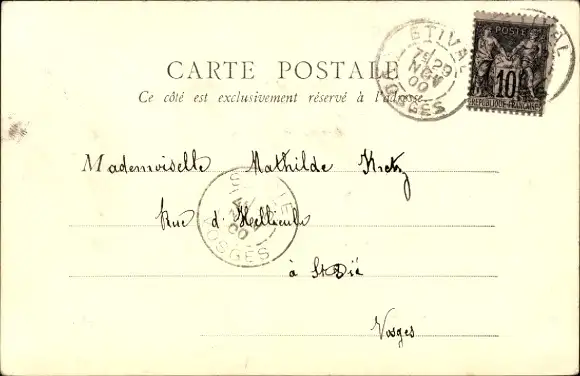 ETIVAL
7E 29
NOV
00
VOSGES
POSTE
10
RÉPUBLIQUE FRANÇAISE
CARTE POSTALE
Ce côté est exclusivement réservé à l'adresse
Mademoiselle Mathilde Kretz
Rue d'Hellieule
à St Dié
Vosges
ST DIE
00
VOSGES